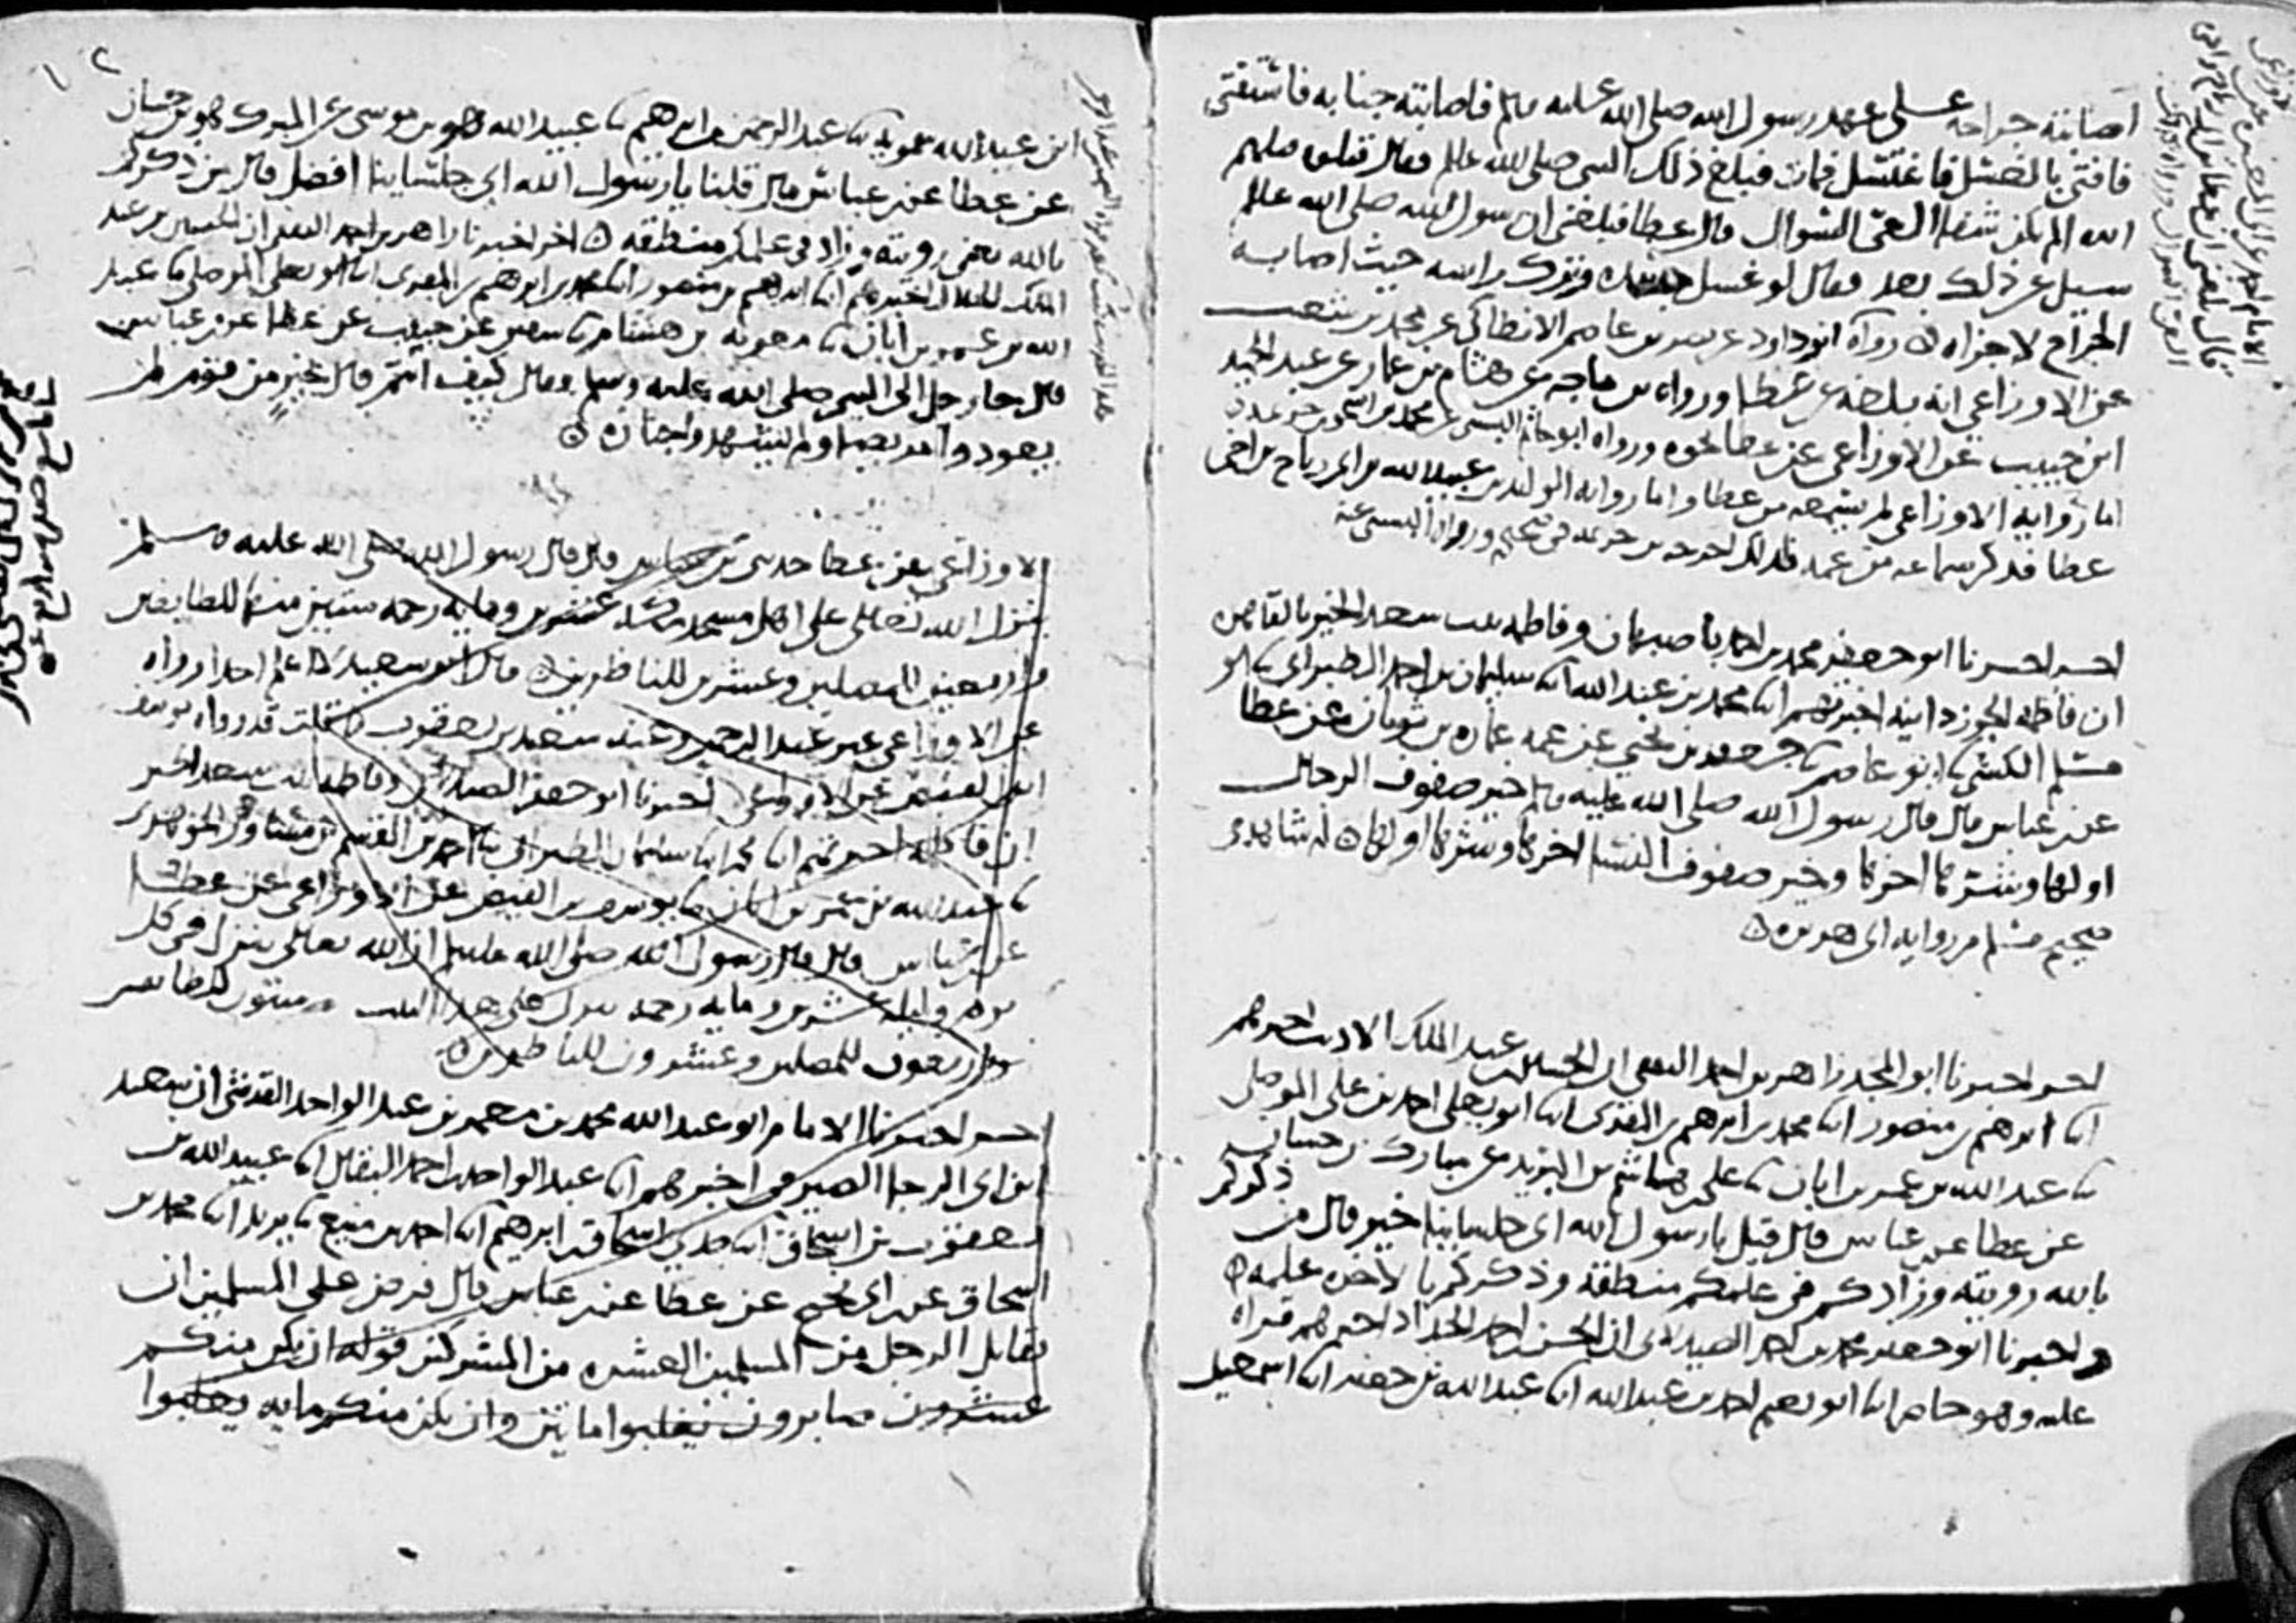 اصابته جراحه على عهد رسول الله صلى الله عليه وسلم فاصابته جنابه فاستفتى
فافتى بالغسل فاغتسل فمات فبلغ ذلك النبي صلى الله عليه وسلم فقال قتلوه قتلهم
الله الم يكن شفا العي السوال قال عطا فبلغني ان رسول الله صلى الله عليه وسلم
سيل عن ذلك بعد فقال لو غسل جسده وترك راسه حيث اصابه
الجراح لاجزاه رواه ابو داود عن نصر بن عاصم الانطاكي عن محمد بن شعيب
عن الاوزاعي انه بلغه عن عطا ورواه بن ماجه عن هشام بن عمار عن عبد الحميد
ابن حبيب عن الاوزاعي عن عطا نحوه ورواه ابو حاتم البستي عن محمد بن اسحق بن خزيمه
اما رواية الاوزاعي لم يسمعه من عطا واما روايه الوليد بن عبيد الله بن ابي رباح بن اخي
عطا فذكر سماعه من عمه فلذلك اخرجه بن خزيمه في صحيحه ورواه البستي عنه
اخبرنا ابو جعفر محمد بن احمد باصبهان وفاطمه بنت سعد الخير بالقاهره
ان فاطمه الجوزدانيه اخبرتهم ابنا محمد بن عبد الله ابنا سليمان بن احمد الطبراني ثنا ابو
مسلم الكشي ثنا ابو عاصم ثنا جعفر بن يحيى عن عمه عماره بن ثوبان عن عطا
عن بن عباس قال قال رسول الله صلى الله عليه وسلم خير صفوف الرجال
اولها وشرها اخرها وخير صفوف النسا اخرها وشرها اولها له شاهد في
صحيح مسلم من روايه ابي هريره
اخبرنا ابو المجد زاهر بن احمد الثقفي ان الحسين بن عبد الملك الاديب اخبرهم
ابنا ابرهيم بن منصور ابنا محمد بن ابرهيم بن المقري ابنا ابو يعلى احمد بن علي الموصلي
ثنا عبد الله بن عمر بن ابان ثنا علي بن هاشم بن البريد عن مبارك بن حسان
عن عطا عن بن عباس قال قيل يا رسول الله اي جلساينا خير قال من ذكركم
بالله رويته وزاد في علمكم منطقه وذكركم بالاخره علمه
واخبرنا ابو جعفر محمد بن احمد الصيدلاني ان الحسن بن احمد الحداد اخبرهم قراه
عليه وهو حاضر ابنا ابو نعيم احمد بن عبد الله ابنا عبد الله بن جعفر ابنا اسمعيل
ابن عبد الله سمويه ثنا عبد الرحمن بن ابرهيم ثنا عبيد الله هو بن موسى عن المبرك هو بن حسان
عن عطا عن بن عباس قال قلنا يا رسول الله اي جلساينا افضل قال من ذكركم
بالله يعني رويته وزاد في علمكم منطقه اخر اخبرنا زاهر بن احمد الثقفي ان الحسين بن عبد
الملك الخلال اخبرهم ابنا ابرهيم بن منصور ابنا محمد بن ابرهيم بن المقري ابنا ابو يعلى الموصلي ثنا عبد
الله بن عمر بن ابان ثنا معويه بن هشام ثنا سفين عن حبيب عن عطا عن بن عباس
قال جا رجل الى النبي صلى الله عليه وسلم فقال كيف انتم قال خير من قوم لم
يعودوا مريضا ولم يشهدوا جنازه
الاوزاعي عن عطا حدثني بن عباس قال قال رسول الله صلى الله عليه وسلم
ينزل الله تعالى على اهل مسجد مكه عشرين ومايه رحمه ستين منها للطايفين
واربعين للمصلين وعشرين للناظرين قال ابو سعيد لا اعلم احدا رواه
عن الاوزاعي غير عبد الرحمن وعنه سعيد بن يعقوب قلت قد رواه يوسف
ابن الفيض عن الاوزاعي اخبرنا ابو جعفر الصيدلاني وفاطمه بنت سعد الخير
ان فاطمه اخبرتهم ابنا محمد ابنا سليمان الطبراني ثنا احمد بن القسم بن مساور الجوهري
ثنا عبد الله بن عمر بن ابان ثنا يوسف بن الفيض عن الاوزاعي عن عطا
عن بن عباس قال قال رسول الله صلى الله عليه وسلم ان الله تعالى ينزل في كل
يوم وليله عشرين ومايه رحمه ينزل على هذا البيت ستون للطايفين
واربعون للمصلين وعشرون للناظرين
اخبرنا الامام ابو عبد الله محمد بن معمر بن عبد الواحد القرشي ان سعيد
ابن ابي الرجا الصيرفي اخبرهم ابنا عبد الواحد بن احمد البقال ابنا عبيد الله بن
يعقوب بن اسحاق ابنا جدي اسحاق بن ابرهيم ابنا احمد بن منيع ثنا يزيد ابنا محمد بن
اسحاق عن بن ابي نجيح عن عطا عن بن عباس قال فرض على المسلمين ان
يقاتل الرجل من المسلمين العشره من المشركين قوله ان يكن منكم
عشرون صابرون يغلبوا مايتين وان يكن منكم مايه يغلبوا